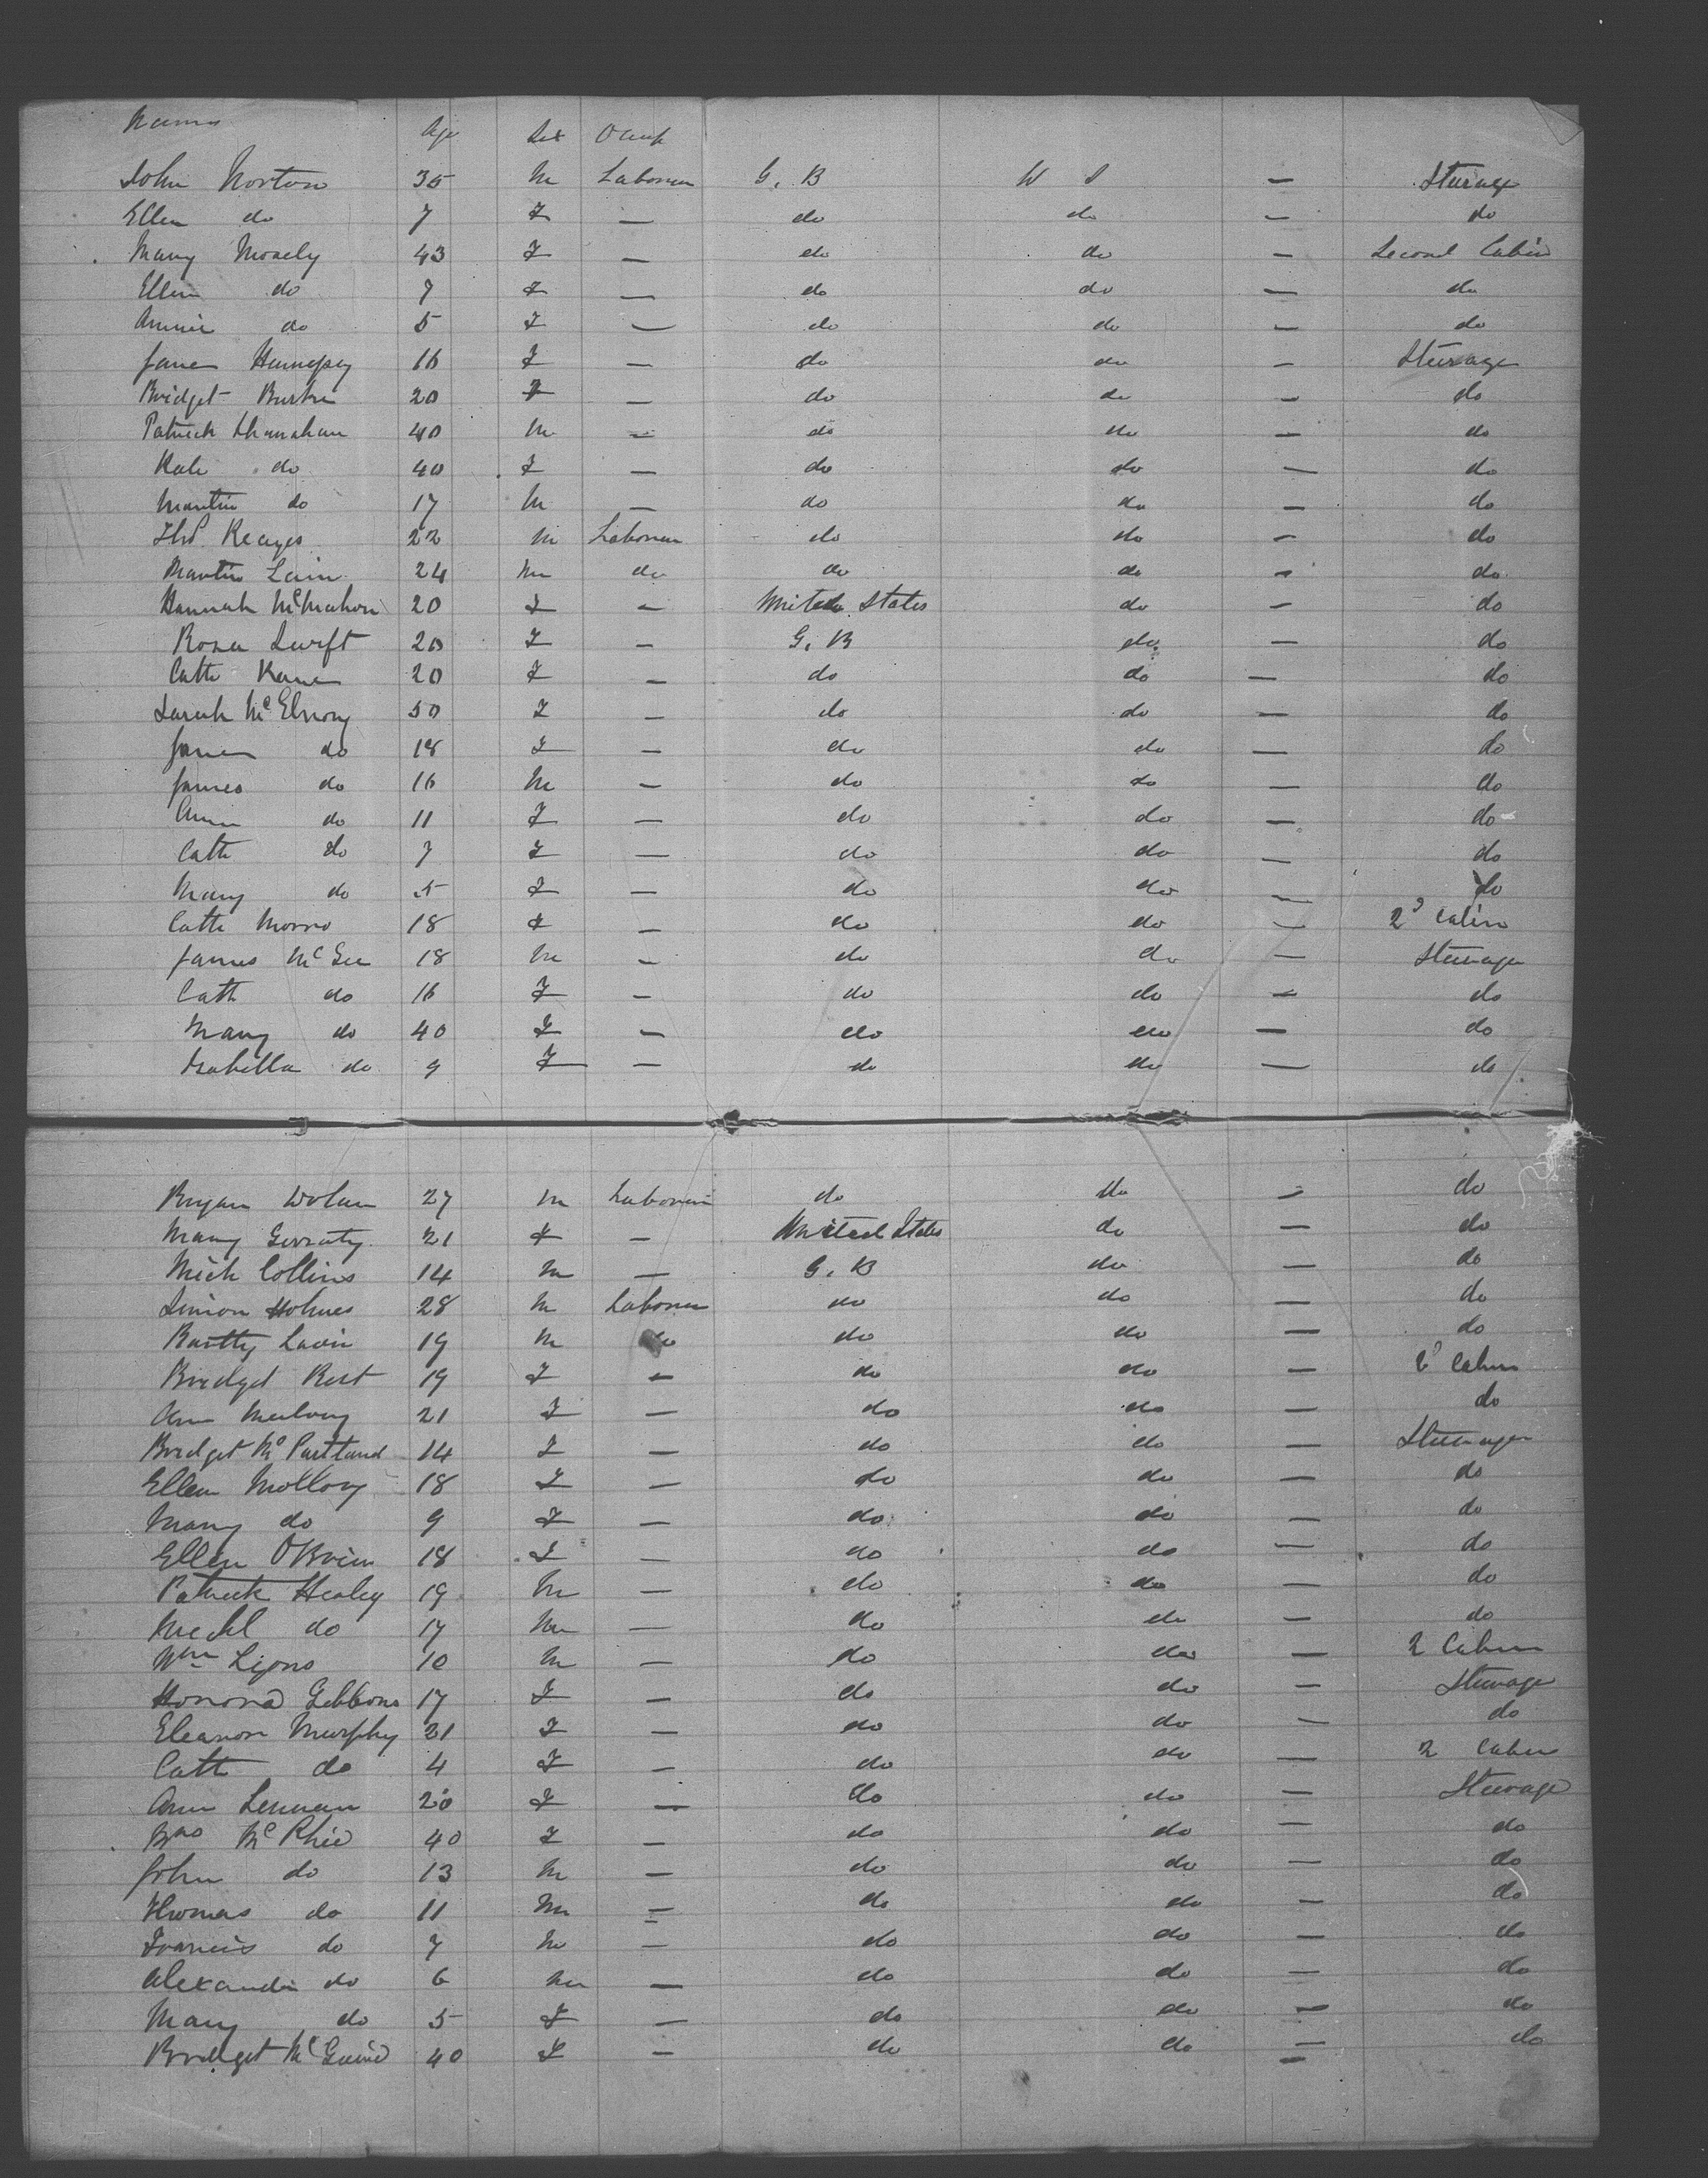 Names Age Sex Occup
John Norton 35 M Laborer G. B U S — Steerage
Ellen do 7 F — do do — do
Mary Morely 43 F — do do — Second Cabin
Ellen do 7 F — do do — do
Annie do 5 F — do do — do
Jane Hennessy 16 F — do do — Steerage
Bridget Burke 20 F — do do — do
Patrick Shanahan 40 M — do do — do
Kate do 40 F — do do — do
Martin do 17 M — do do — do
Thos Keayes 22 M Laborer do do — do
Martin Lain 24 M do do do — do
Hannah McMahon 20 F — United States do — do
Rosa Swift 20 F — G. B do — do
Cath Kane 20 F — do do — do
Sarah McElroy 50 F — do do — do
Jane do 18 F — do do — do
James do 16 M — do do — do
Ann do 11 F — do do — do
Cath do 7 F — do do — do
Mary do 5 F — do do — do
Cath Morro 18 F — do do — 2d Cabin
James McGee 18 M — do do — Steerage
Cath do 16 F — do do — do
Mary do 40 F — do do — do
Isabella do 9 F — do do — do
Bryan Dolan 27 M Laborer do do — do
Mary Gerraty 21 F — United States do — do
Mich Collins 14 M — G. B do — do
Simon Holmes 28 M Laborer do do — do
Bartty Lavin 19 M do do do — do
Bridget Rest 19 F — do do — 2d Cabin
Ann Mulvey 21 F — do do — do
Bridget McPartland 14 F — do do — Steerage
Ellen Molloy 18 F — do do — do
Mary do 9 F — do do — do
Ellen OBrien 18 F — do do — do
Patrick Healey 19 M — do do — do
Michl do 17 M — do do — do
Wm Lyons 10 M — do do — 2 Cabin
Honora Gibbons 17 F — do do — Steerage
Eleanor Murphy 21 F — do do — do
Cath do 4 F — do do — 2 Cabin
Ann Lennan 20 F — do do — Steerage
Mrs McPhie 40 F — do do — do
John do 13 M — do do — do
Thomas do 11 M — do do — do
Francis do 7 M — do do — do
Alexander do 6 M — do do — do
Mary do 5 F — do do — do
Bridget McGuire 40 F — do do — do